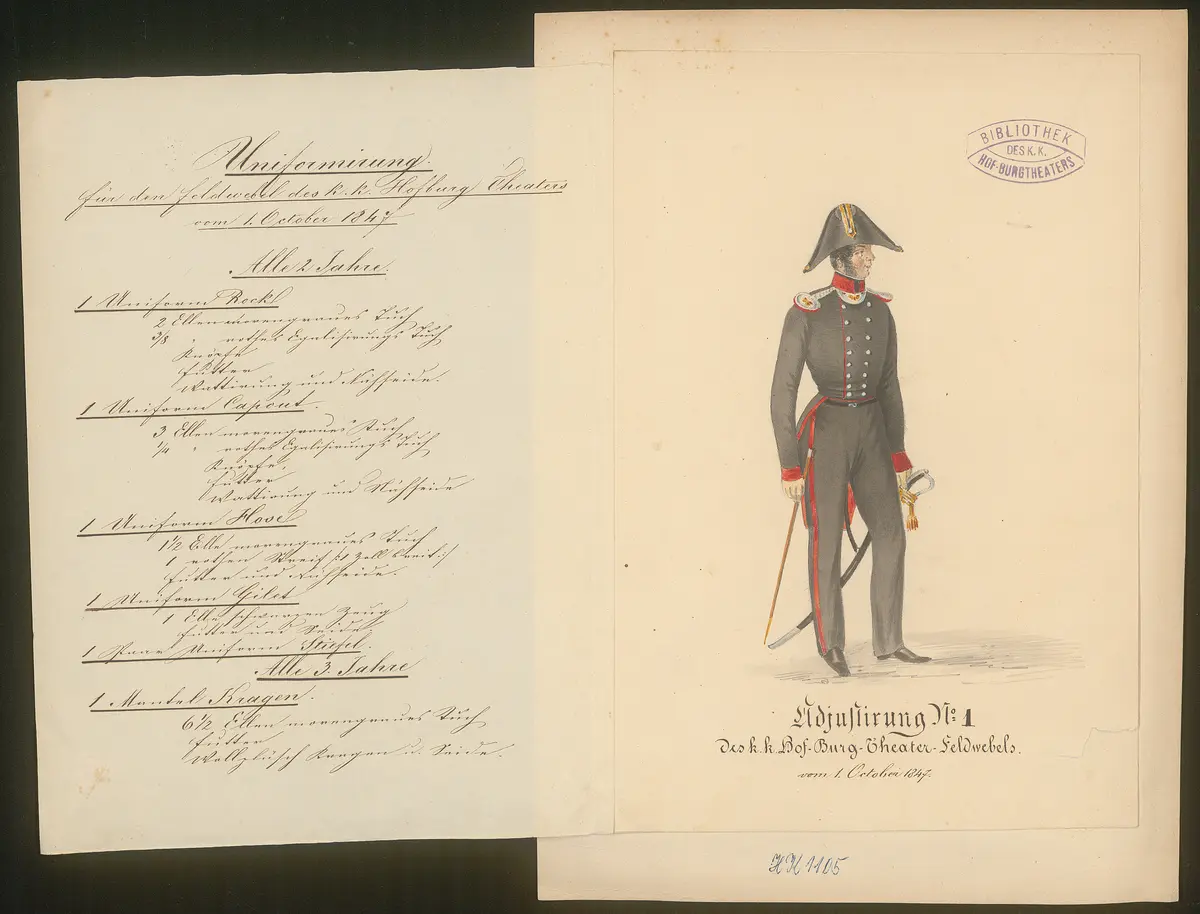 Uniformirung.
für den Feldwebel des k. k. Hofburg Theaters
vom 1. October 1847
Alle 2 Jahre.
1 Uniform Rockl
2 Ellen morengraues Tuch
3/8 " rothes Egalisirungs Tuch
Knöpfe
Futter
Wattirung und Nähseide.
1 Uniform Caput.
3 Ellen morengraues Tuch
1/4 " rothes Egalisirungs Tuch
Knöpfe,
Futter
Wattirung und Nähseide
1 Uniform Hose
1 1/2 Elle morengraues Tuch
1 rothen Streif /:1 Zoll breit:/
Futter und Nähseide.
1 Uniform Gilet
1 Elle schwarzen Zeug
Futter und Seide
1 Paar Uniform Stiefel.
Alle 3 Jahre
1 Mantel Kragen.
6 1/2 Ellen morengraues Tuch
Futter
Wollplüsch Kragen u. Seide.
BIBLIOTHEK
DES K. K.
HOF-BURGTHEATERS
Adjustirung No. 1
des k. k. Hof-Burg-Theater-Feldwebels.
vom 1. October 1847.
HH 1105